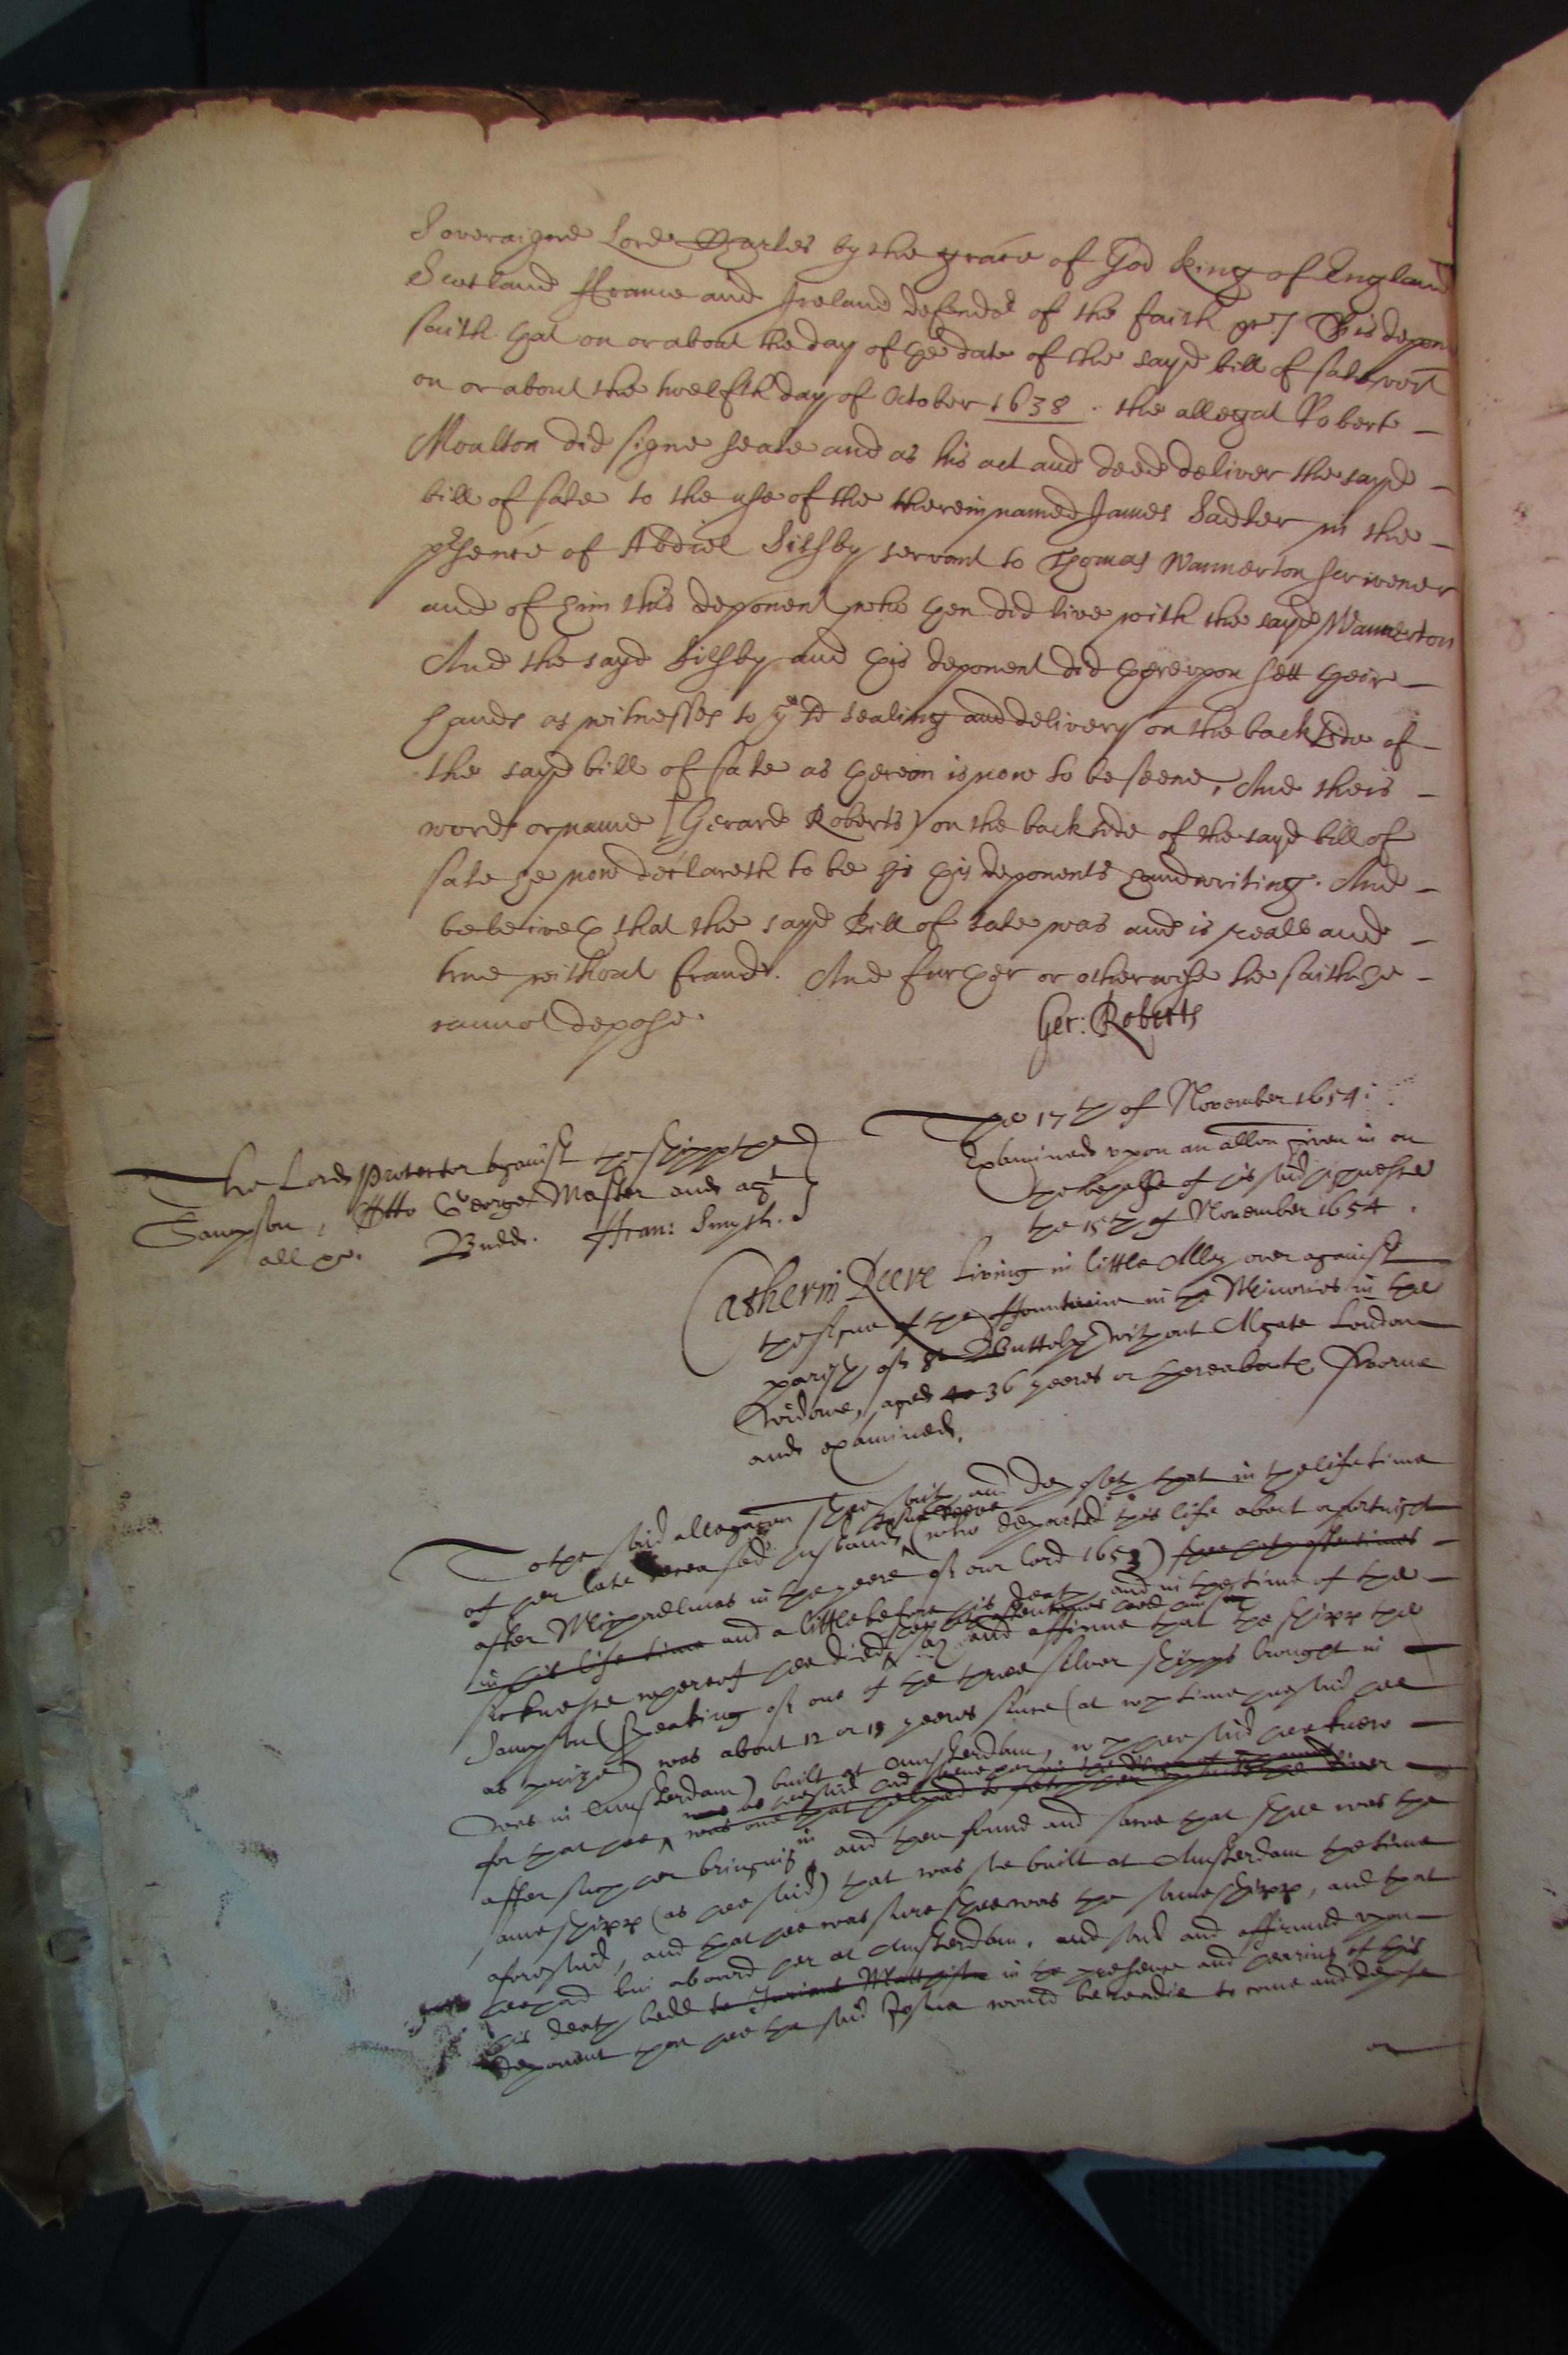 Soveraigne Lord Charles by the grace of God King of England
Scotland France and Ireland defendor of the faith &c] This depont
saith that on or about the day of the date of the sayd bill of sale vizt
on or about the twelfth day of October 1638. the allegat Robert
Moulton did signe seale and as his act and deed deliver the sayd
bill of sale to the use of the therein named James Sadler in the
presence of Abdiel Silsby servant to Thomas Wannerton scrivener
and of him this deponent who then did live with the sayd Wannerton
And the sayd Silsby and this deponent did thereupon sett their
hands as witnesses to the sealing and delivery on the backside of
the sayd bill of sale as thereon is now to be seene, And theis
words or name [Gerard Roberts] on the backside of the sayd bill of
sale he now declareth to be his this deponents handwriting. And
beleiveth that the sayd Bill of sale was and is reall and
true without fraude. And further or otherwise he saith he
cannot depose.
Ger: Roberts
The 17th of November 1654:
The Lord Protector against the shipp the
Sampson, Otto George Master and agt
all &c. Budd. ffran: Smyth.
Examined upon an allon given in on
the behalfe of his said highnesse
the 15th of November 1654.
Catherin Reeve living in little Alley over against
the signe of the ffountaine in the Minories in the
parish of St Buttolph without Algate London
Widowe, aged 36 yeeres or thereabouts Sworne
and examined.
To the said allegacon shee saith and deposeth that in the life time
of her late deceased husband (who departed this life about a fortnight
after Michaelmas in the yeere of our lord 1653) shee hath oftentimes
in his life time and a little before his death and in the time of the
shee hath oftentimes heard him
sicknesse whereof hee died, say and affirme that the shipp the
Sampson (speaking of one of the three silver shipps brought in
as prize) was about 12 or 13 yeeres since (at wch time hee said hee
was in Amsterdam) built at Amsterdam, wch hee said hee knew
for that hee
after such her bringing in, and then found and sawe that shee was the
same shipp (as hee said) that was soe built at Amsterdam the time
aforesaid, and that hee was sure shee was the same shipp, and that
hee had bin aboard her at Amsterdam. and said and affirmed upon
his death bedd in the presence and hearing of this
deponent that hee the said Josua would be readie to come and depose
or